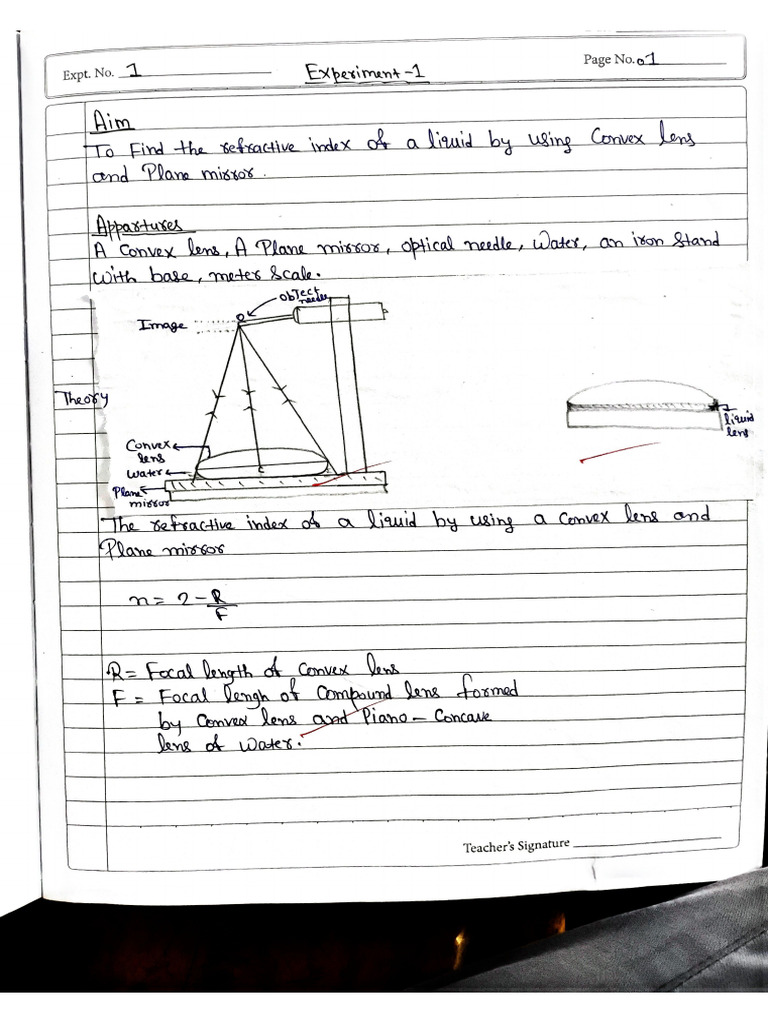 Expt. No. 1
Experiment-1
Page No. 01
Aim
To Find the refractive index of a liquid by using Convex lens
and Plane mirror.
Appartures
A Convex lens, A Plane mirror, optical needle, Water, an iron Stand
With base, meter Scale.
object
needle
Image
Theory
Convex
lens
Water
Plane
mirror
C
liquid
lens
The refractive index of a liquid by using a Convex lens and
Plane mirror
n = 2 - R/F
R = Focal length of Convex lens
F = Focal lengh of Compound lens formed
by Convex lens and Piano - Concave
lens of Water.
Teacher's Signature